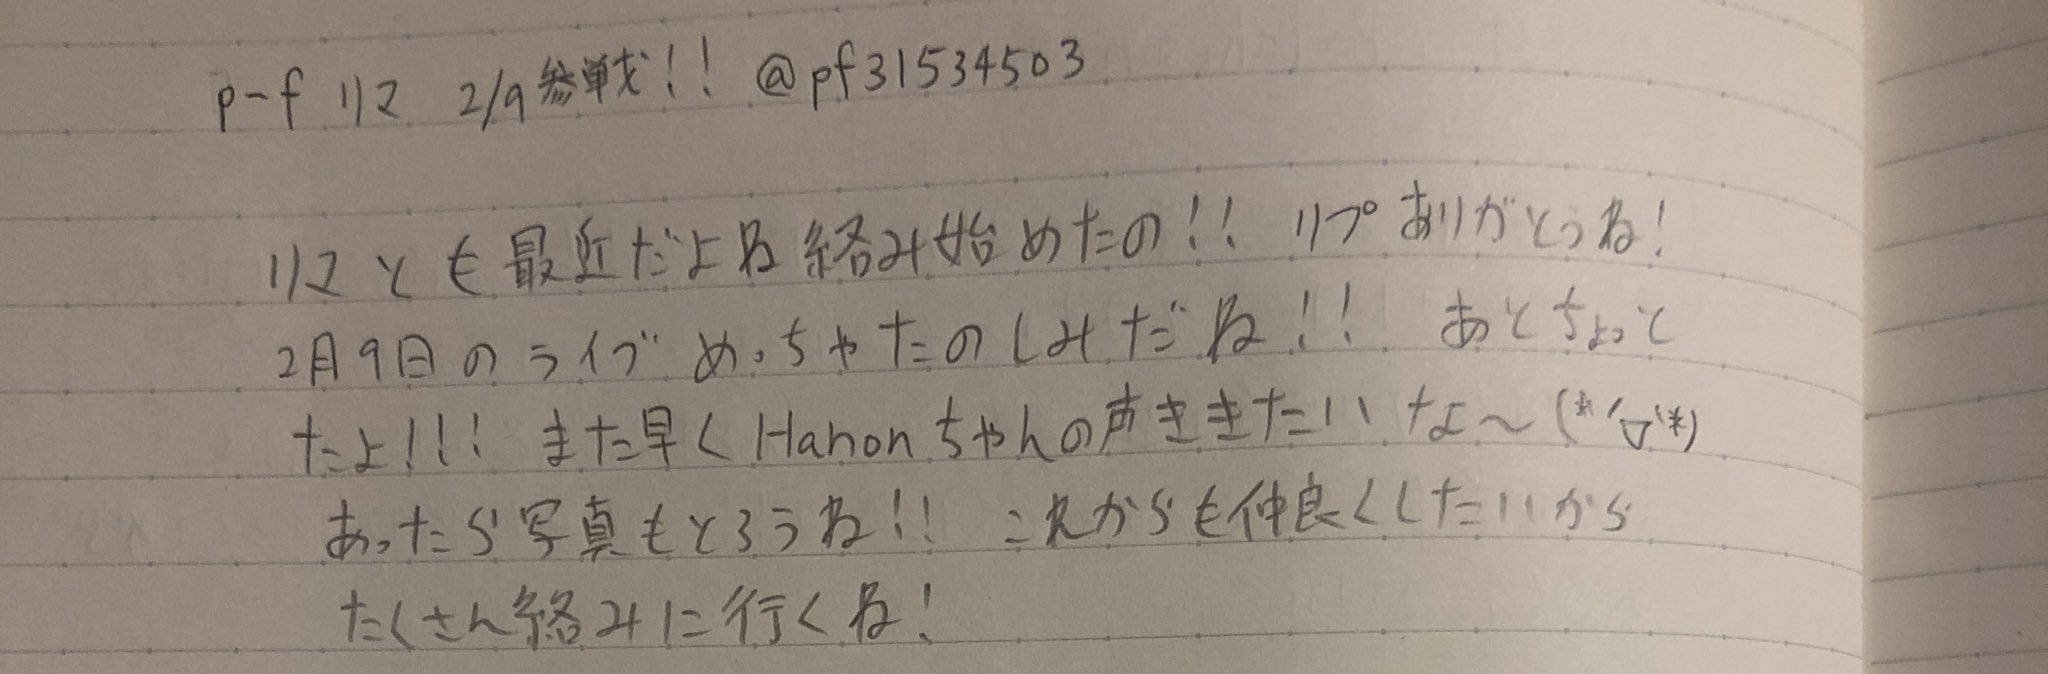 p-f リマ 2/9参戦!! @pf31534503
リマとも最近だよね絡み始めたの!! リプありがとうね!
2月9日のライブめっちゃたのしみだね!! あとちょっと
だよ!!! また早くHanonちゃんの声ききたいな〜(*'▽'*)
あったら写真もとろうね!! これからも仲良くしたいから
たくさん絡みに行くね!